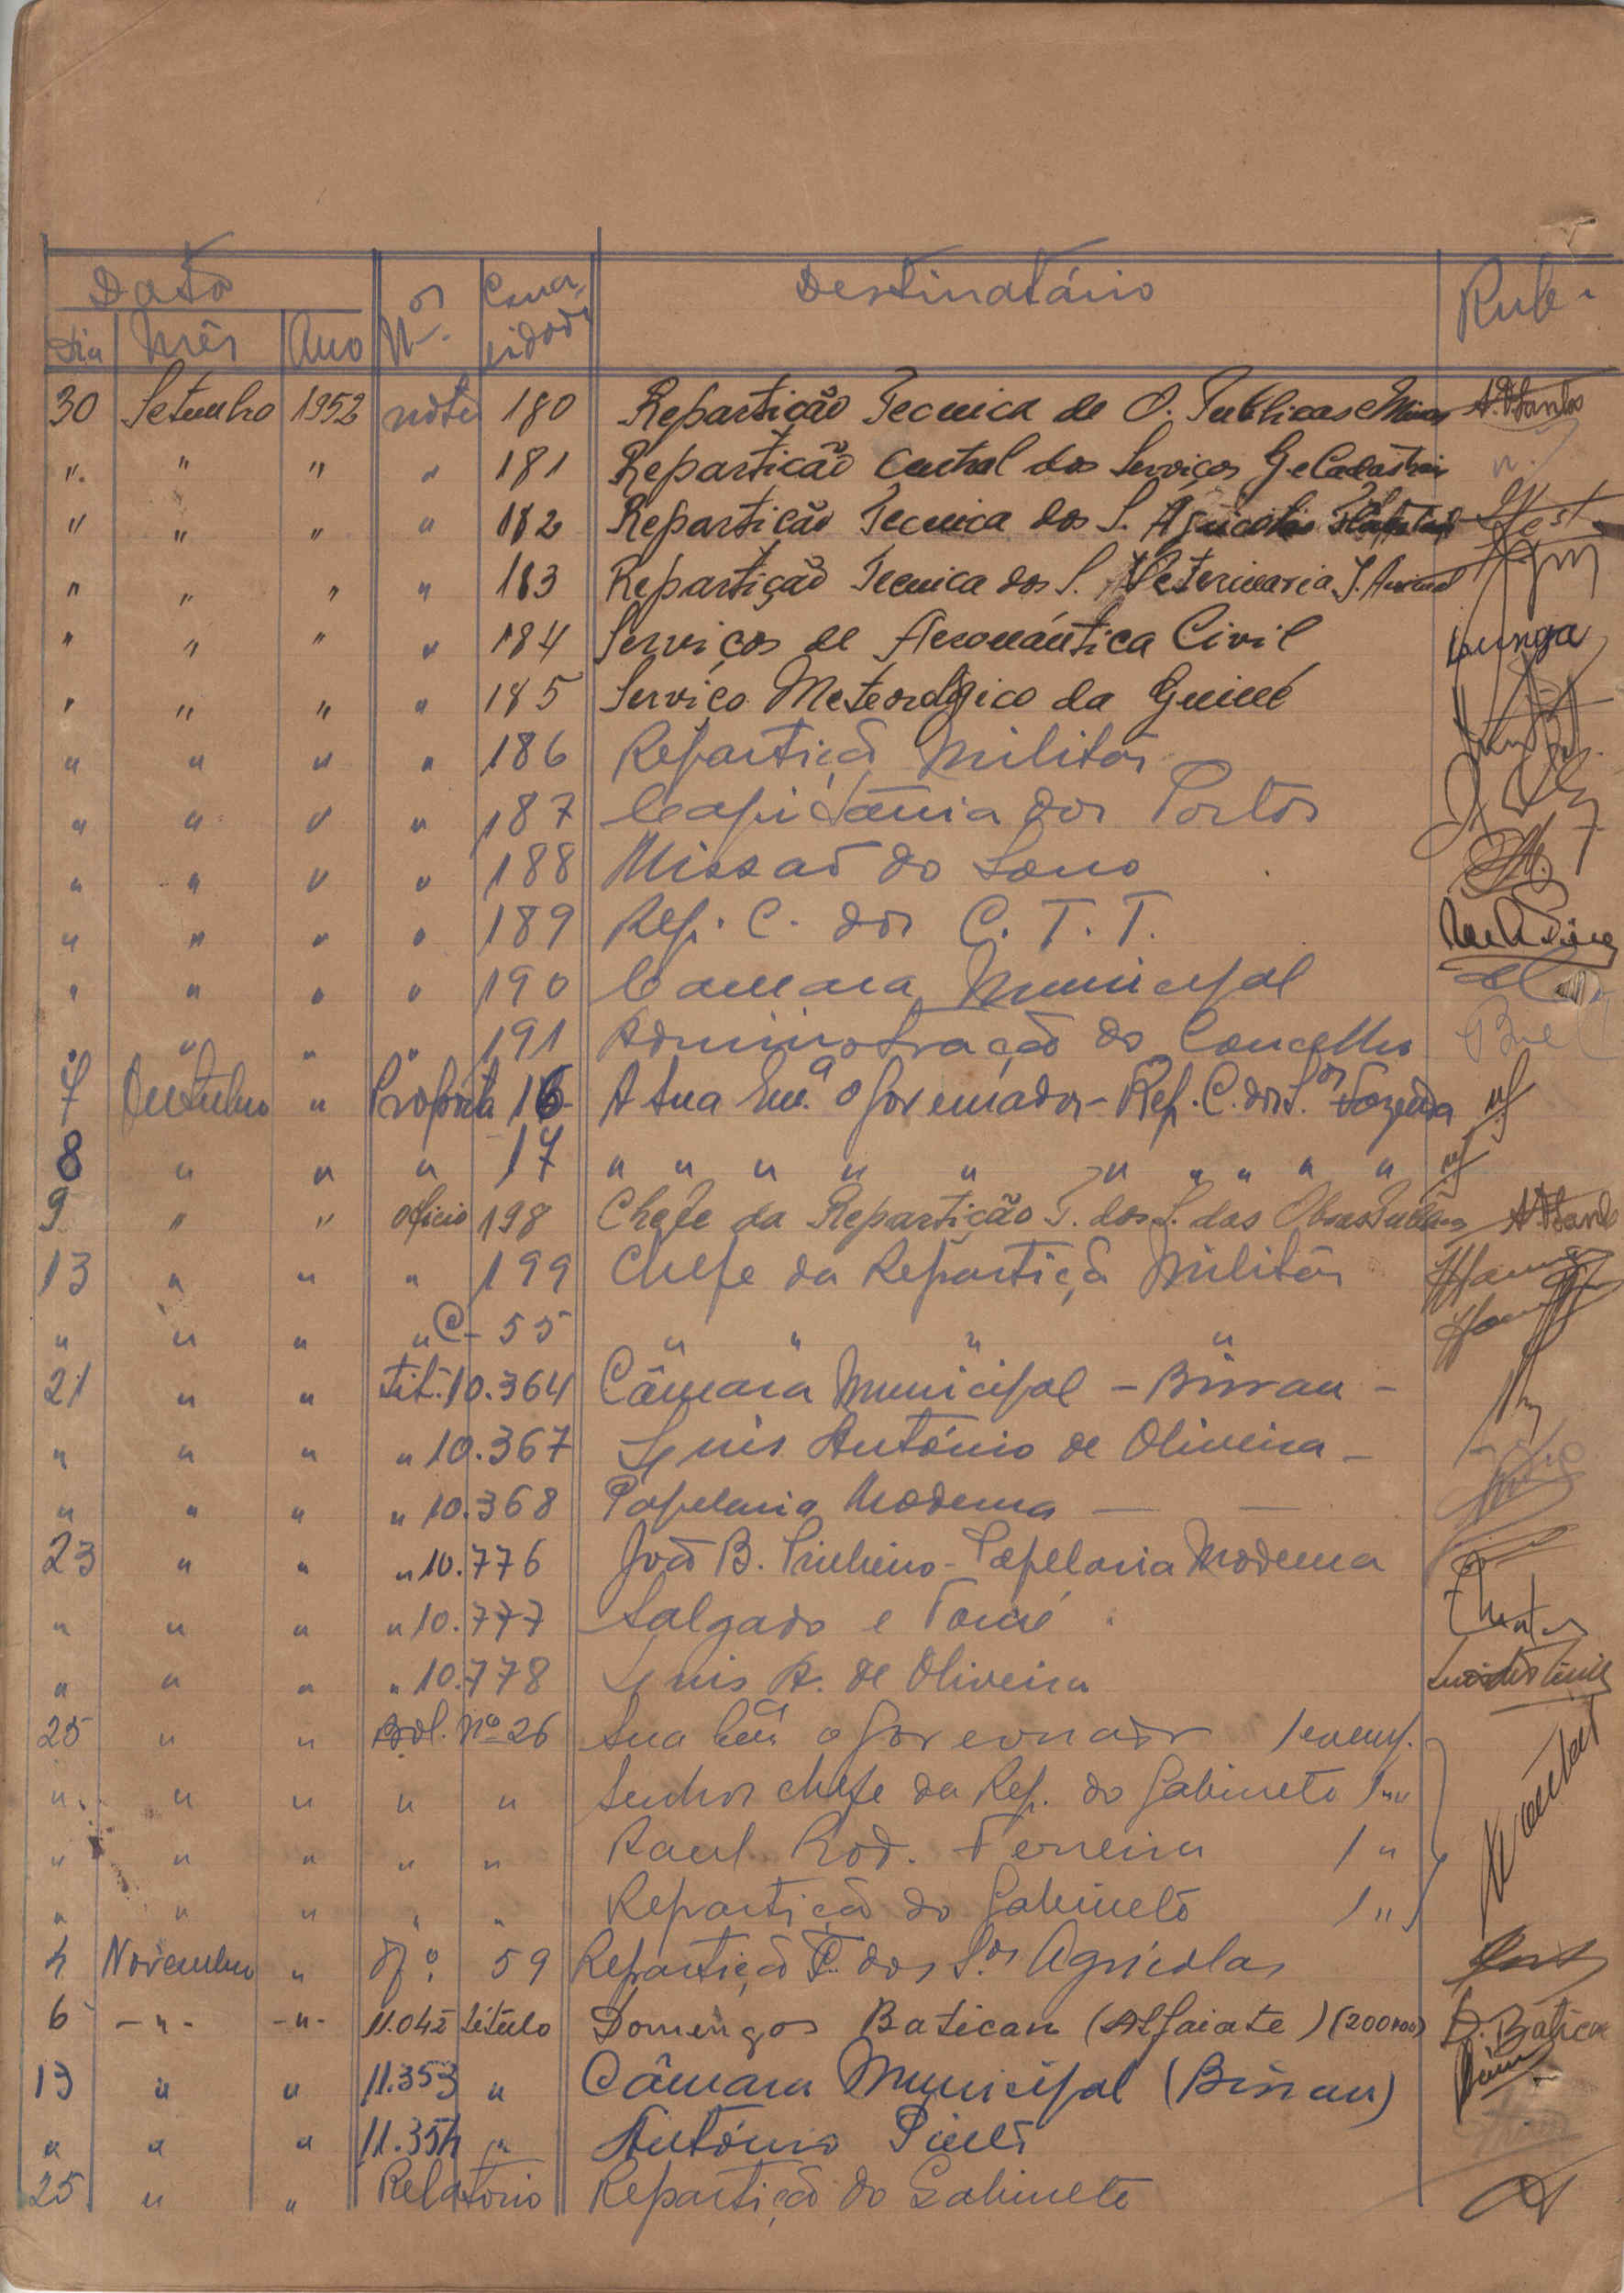 Data Destinatário
Dia Mês Ano N.os
30 Setembro 1952 nota 180 Repartição Tecnica de O. Publicas e Minas A. D. Santos
" " " " 181 Repartição Central dos Serviços G. e Cadastrais
" " " " 182 Repartição Tecnica dos S. Agricolas
" " " " 183 Repartição Tecnica dos S. Veterinaria I. Animal
" " " " 184 Serviços de Aeronáutica Civil
" " " " 185 Serviço Meteorológico da Guiné
" " " " 186 Repartiçã Militar
" " " " 187 Capitania dos Portos
" " " " 188 Missão do Sono
" " " " 189 Rep. C. dos C. T. T.
" " " " 190 Camara Municipal
" " " " 191 Administração do Concelho
7 Outubro " Proposta 16 A Sua Exa. o Governador - Rep. C. dos S.os Fazenda
8 " " " 17 " " " " " " " " " "
9 " " oficio 198 Chefe da Repartição T. dos S. das Obras Publicas A. D. Santos
13 " " " 199 Chefe da Repartiçã Militar
" " " " C- 55 " " " "
21 " " Tit. 10.364 Câmara Municipal - Bissau -
" " " " 10.367 Luis António de Oliveira -
" " " " 10.368 Papelaria Moderna —
23 " " " 10.776 João B. Pinheiro - Papelaria Moderna
" " " " 10.777 Salgado e Tomé
" " " " 10.778 Luis A. de Oliveira
25 " " Bol. Nº 26 Sua Exa o Governador 1 exemp.
" " " " " Senhor Chefe da Rep. do Gabinete 1 "
" " " " " Raul Rod. Ferreira 1 "
" " " " " Repartiçã do Gabinete 1 "
4 Novembro " Of.º 59 Repartiçã T. dos S.os Agrícolas
6 -"- -"- 11.042 título Domingos Batican (Alfaiate) (200$00) D. Batican
13 " " 11.353 " Câmara Municipal (Bissau)
" " " 11.354 " António Pinto
25 " " Relatório Repartiçã do Gabinete